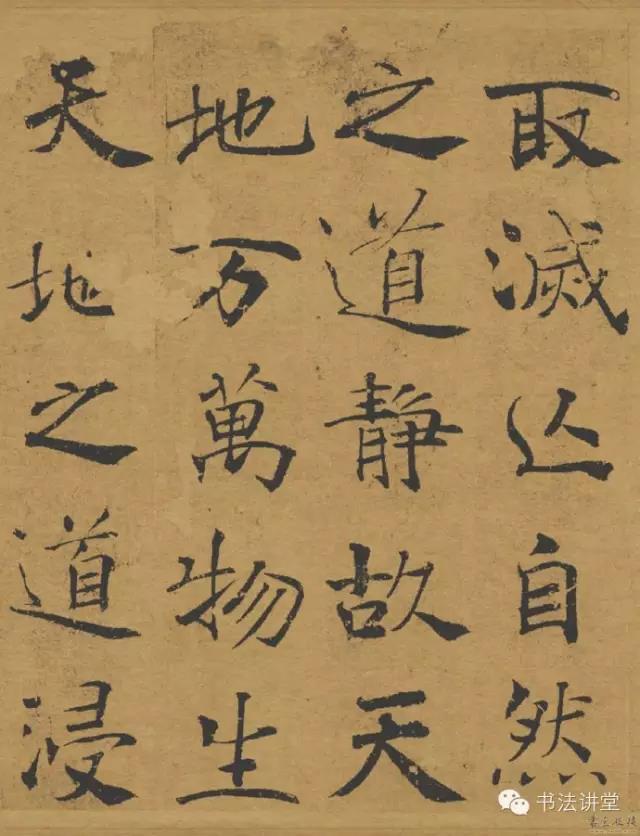 取滅亾自然
之道靜故天
地万萬物生
天地之道浸
书法讲堂